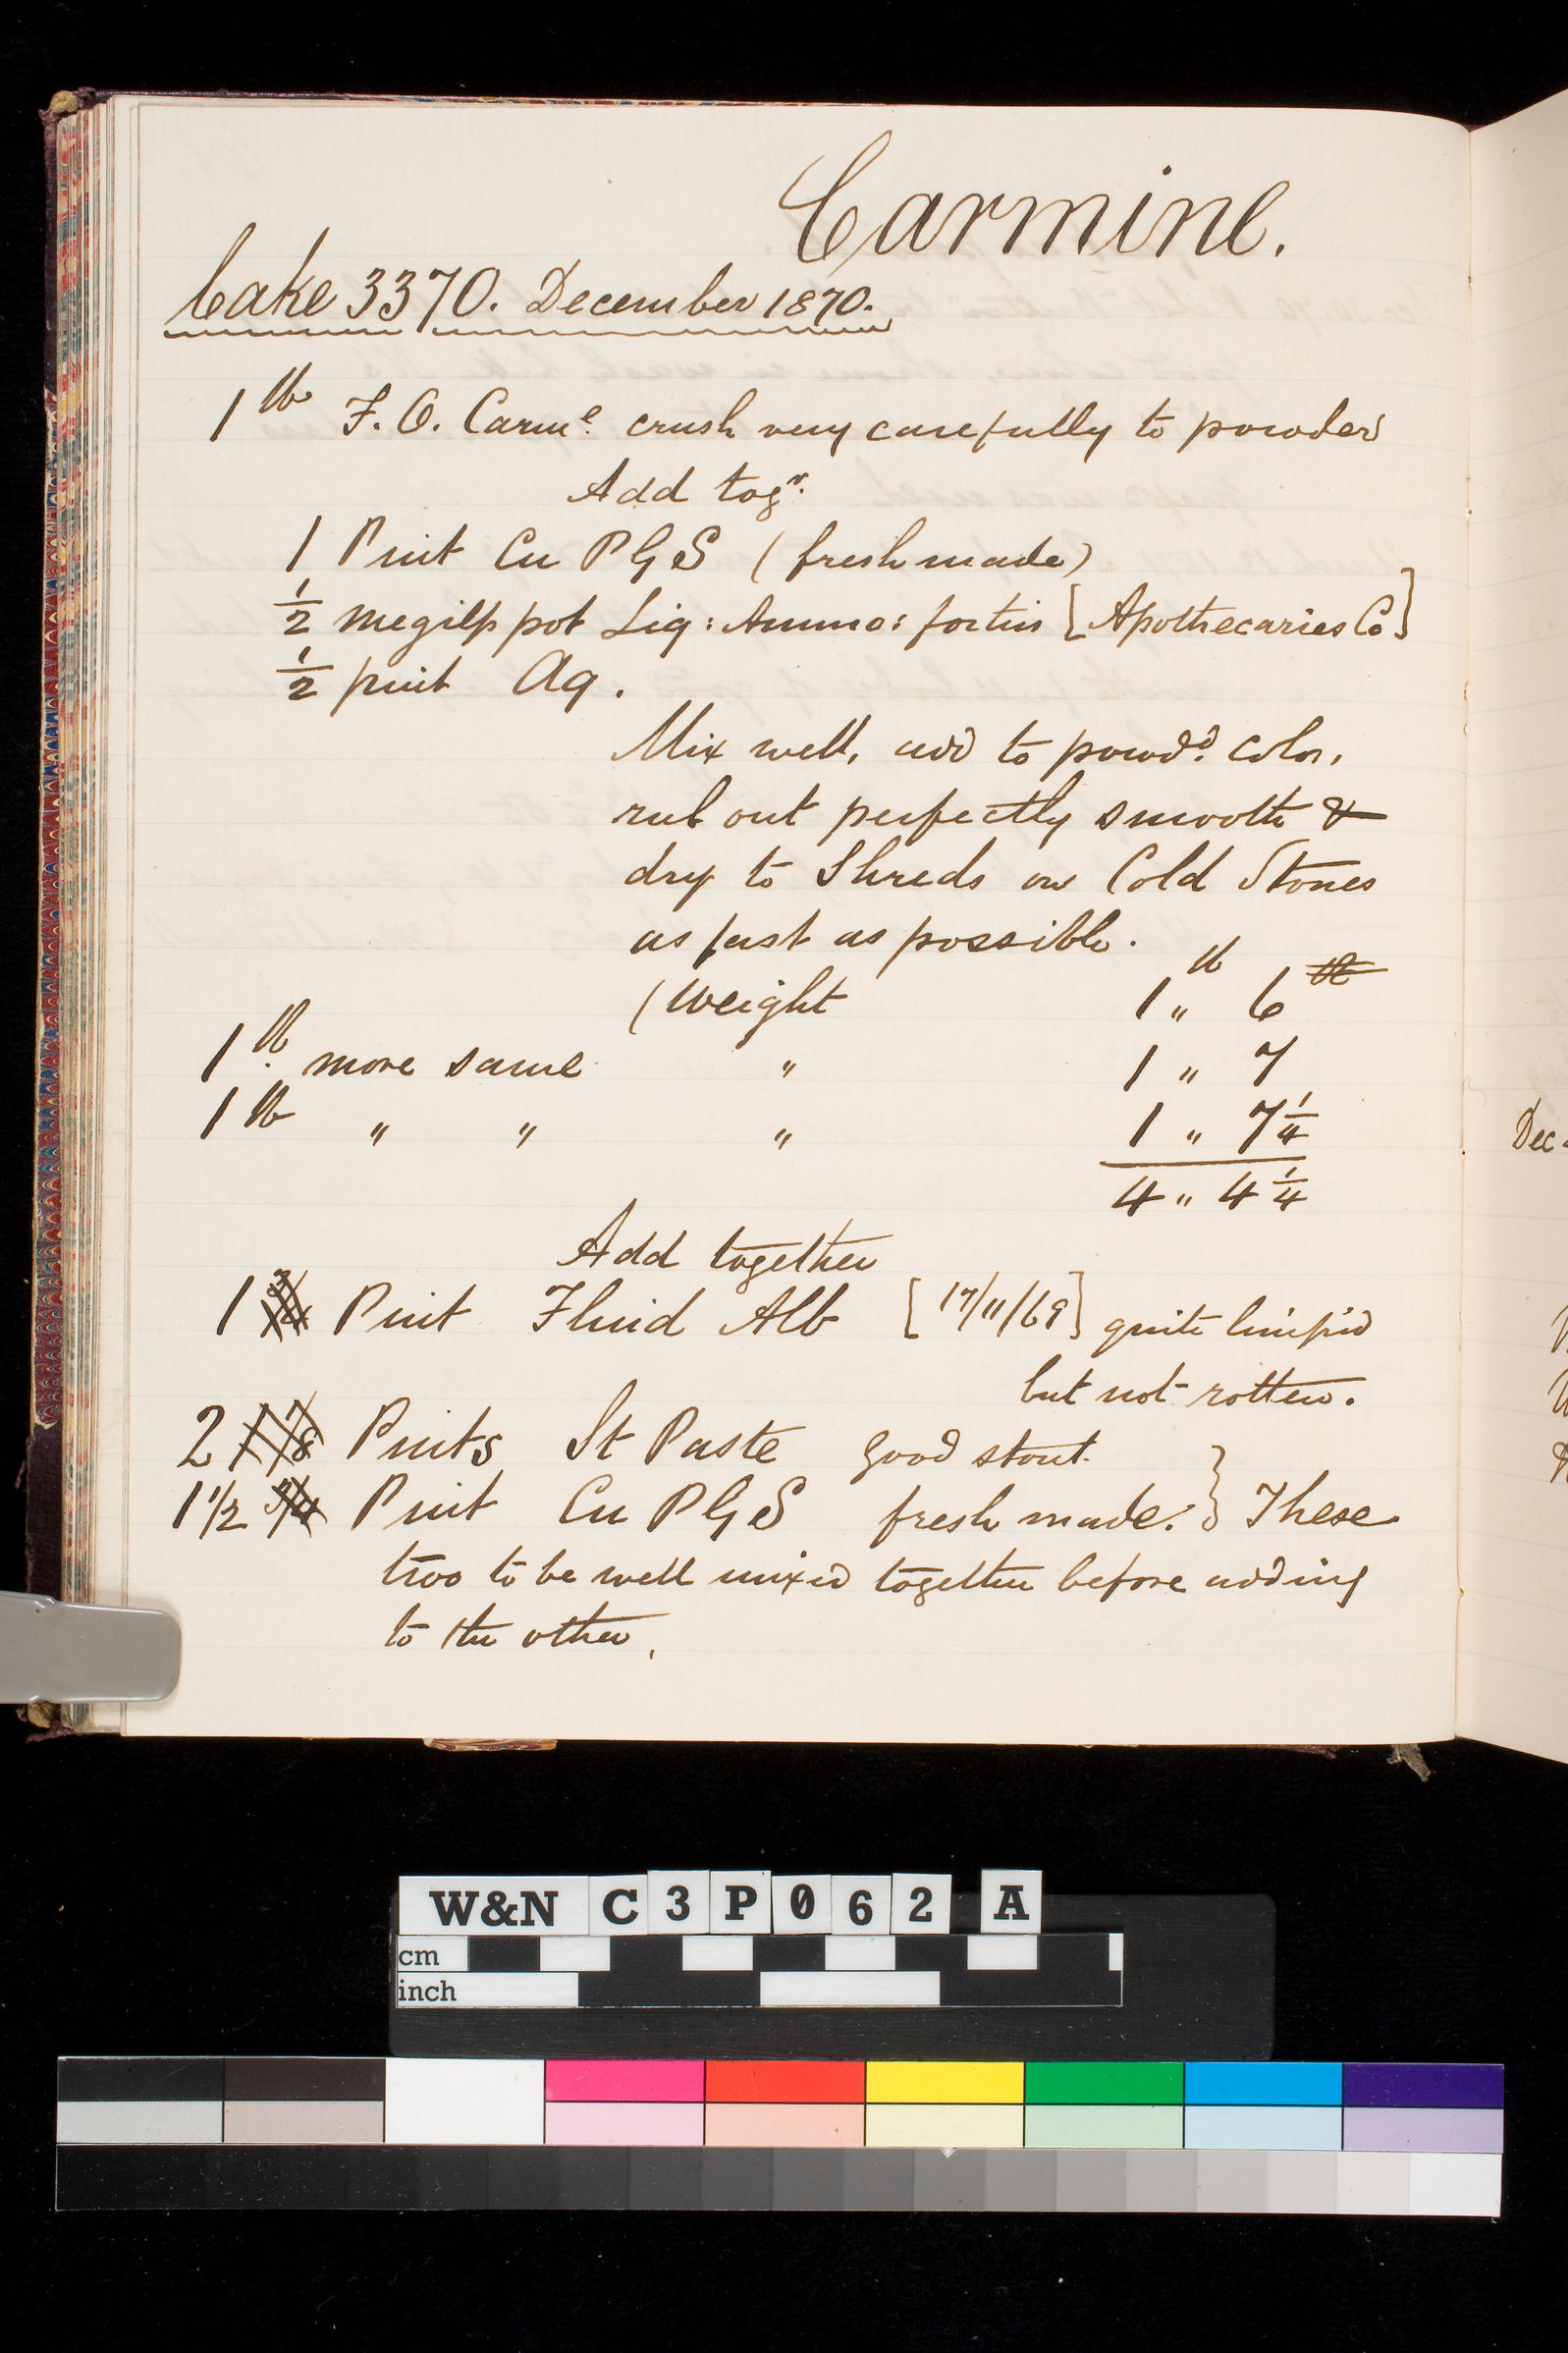 Carmine.
Cake 3370. December 1870.
1 lb F. O. Carme. crush very carefully to powder
Add togr.
1 Pint Cu P G S (fresh made)
1/2 megilp pot Liq: Ammo: fortis [Apothecaries Co]
1/2 pint Aq.
Mix well, add to powdd. color,
rub out perfectly smooth &
dry to Shreds on Cold Stones
as fast as possible.
(Weight 1 lb " 6
1 lb. more same " 1 " 7
1 lb " " " 1 " 7 1/4
4 " 4 1/4
Add together
1 3/4 Pint Fluid Alb [17/11/69] quite limpid
but not rotten.
2 1 7/8 Pints St Paste good stout.
1 1/2 3/4 Pint Cu P G S fresh made. } These
two to be well mixed together before adding
to the other.
Dec
W&N C3P062 A
cm
inch